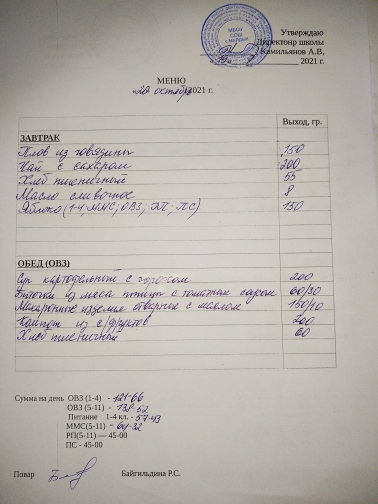 Утверждаю
Директор школы
Камильянов А.В,
2021 г.
МЕНЮ
«20» октября 2021 г.
Выход, гр.
ЗАВТРАК
Плов из говядины 150
Чай с сахаром 200
Хлеб пшеничный 55
Масло сливочное 8
Яблоко (1-4, ММС, ОВЗ, ЭП, ПС) 150
ОБЕД (ОВЗ)
Суп картофельный с горохом 200
Биточки из мяса птицы с томатным 60/30
Макаронные изделия отварные с маслом 150/10
Компот из с/фруктов 200
Хлеб пшеничный 60
Сумма на день ОВЗ (1-4) - 121-66
ОВЗ (5-11) - 138-52
Питание 1-4 кл. - 57-43
ММС(5-11) - 64-32
РП(5-11) — 45-00
ПС - 45-00
Повар Байгильдина Р.С.